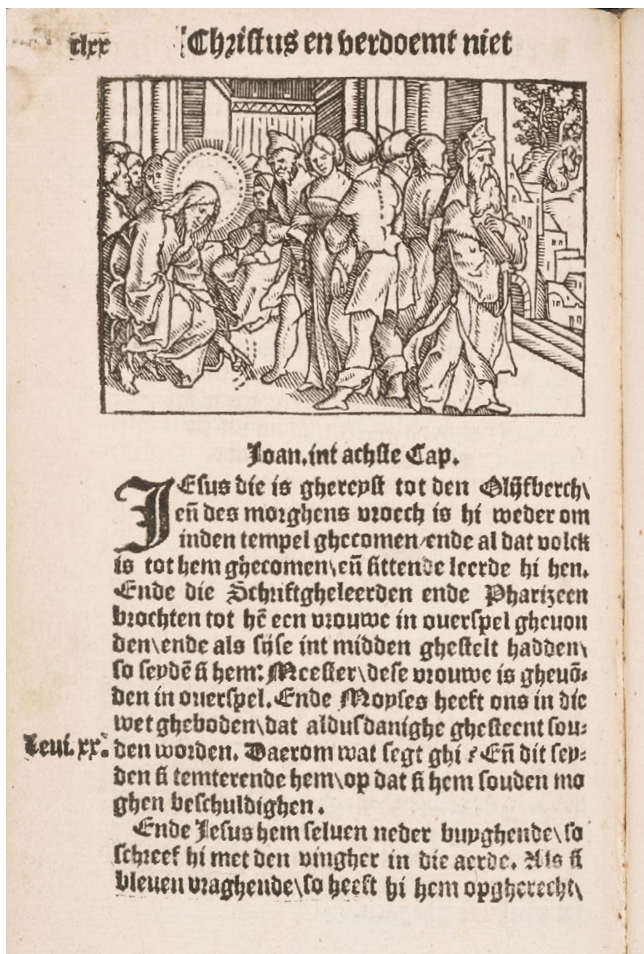 clxx
Christus en verdoemt niet
Joan. int achste Cap.
JEsus die is ghereyst tot den Olijfberch\
eñ des morghens vroech is hi weder om
inden tempel ghecomen/ende al dat volck
is tot hem ghecomen\eñ sittende leerde hi hen.
Ende die Schriftgheleerden ende Pharizeen
brochten tot hẽ een vrouwe in ouerspel gheuon
den\ende als sijse int midden ghestelt hadden\
so seydẽ si hem: Meester\dese vrouwe is gheuõ⸗
den in ouerspel. Ende Moyses heeft ons in die
wet gheboden\dat aldusdanighe ghesteent sou⸗
Leui. xx. den worden. Daerom wat segt ghi? Eñ dit sey⸗
den si temterende hem\op dat si hem souden mo
ghen beschuldighen.
Ende Jesus hem seluen neder buyghende\so
schreef hi met den vingher in die aerde. Als si
bleuen vraghende\so heeft hi hem opgherecht\